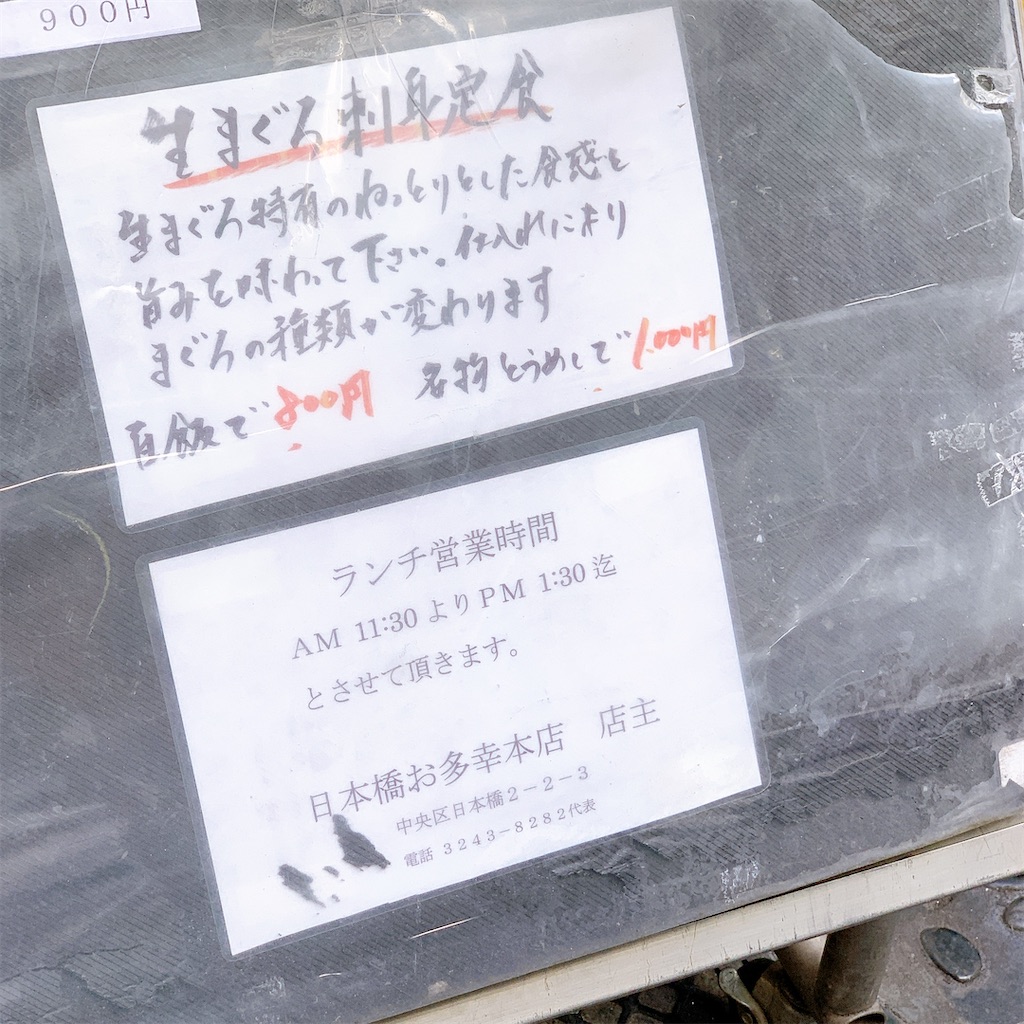 ９００円
生まぐろ刺身定食
生まぐろ特有のねっとりとした食感と
旨みを味わって下さい。仕入れにより
まぐろの種類が変わります
白飯で800円 名物とうめしで1,000円
ランチ営業時間
AM 11:30 よりPM 1:30 迄
とさせて頂きます。
日本橋お多幸本店 店主
中央区日本橋２－２－３
電話 ３２４３－８２８２代表